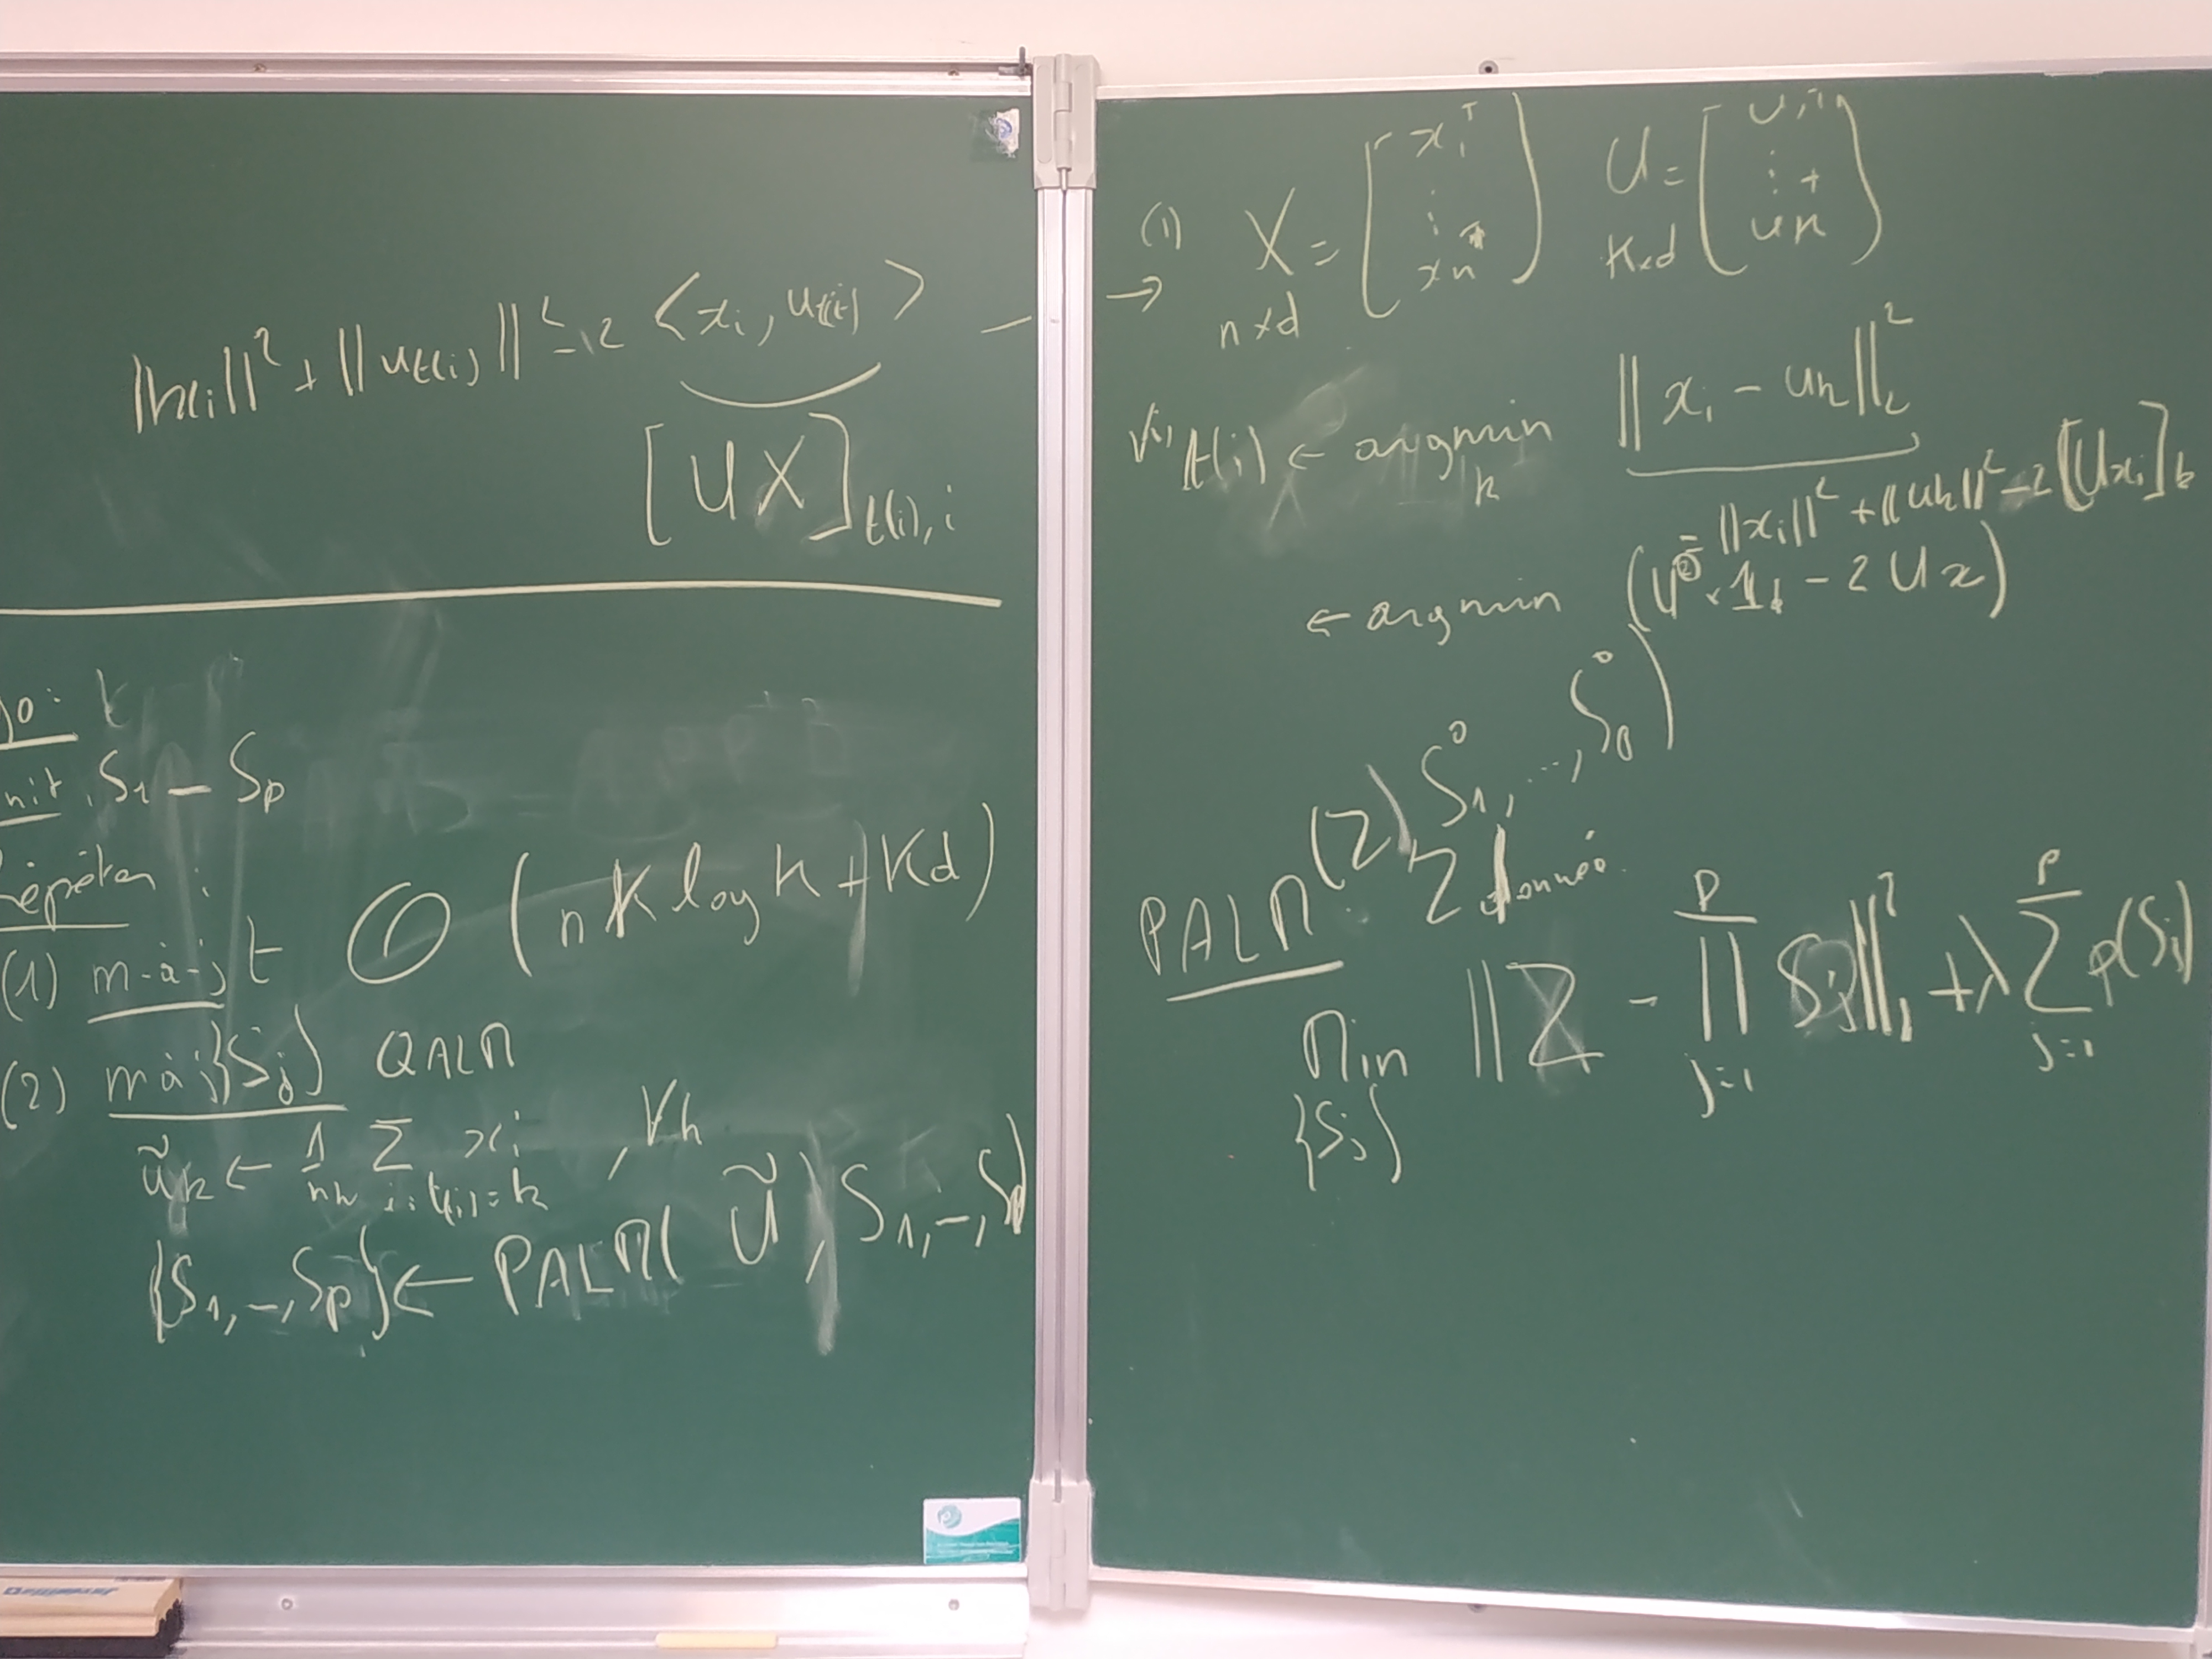 ||xᵢ||² + ||u_t(i)||² - 2 <xᵢ, u_t(i)>
[UX]_t(i),i
nit. S₁ — Sₚ
Répéter :
(1) m-à-j t O(nK log K + Kd)
(2) m à j {Sⱼ} QALM
ũₖ ← 1/nₖ Σ_{i: t(i)=k} xᵢ , ∀k
{S₁, –, Sₚ} ← PALM( Ũ, S₁, –, Sₚ)
(1) → X = [x₁ᵀ ⋮ xₙᵀ] U = [u₁ᵀ ⋮ u_K]
n×d K×d
∀i t(i) ← argmin_k ||xᵢ - uₖ||₂²
= ||xᵢ||² + ||uₖ||² - 2[Uxᵢ]ₖ
← argmin (U^② × 𝟙_d - 2Ux)
PALM (Z, S₁⁰, …, Sₚ⁰)
Z donnée
Min_{Sⱼ} ||Z - ∏_{j=1}^{P} Sⱼ||² + λ Σ_{j=1}^{P} p(Sⱼ)